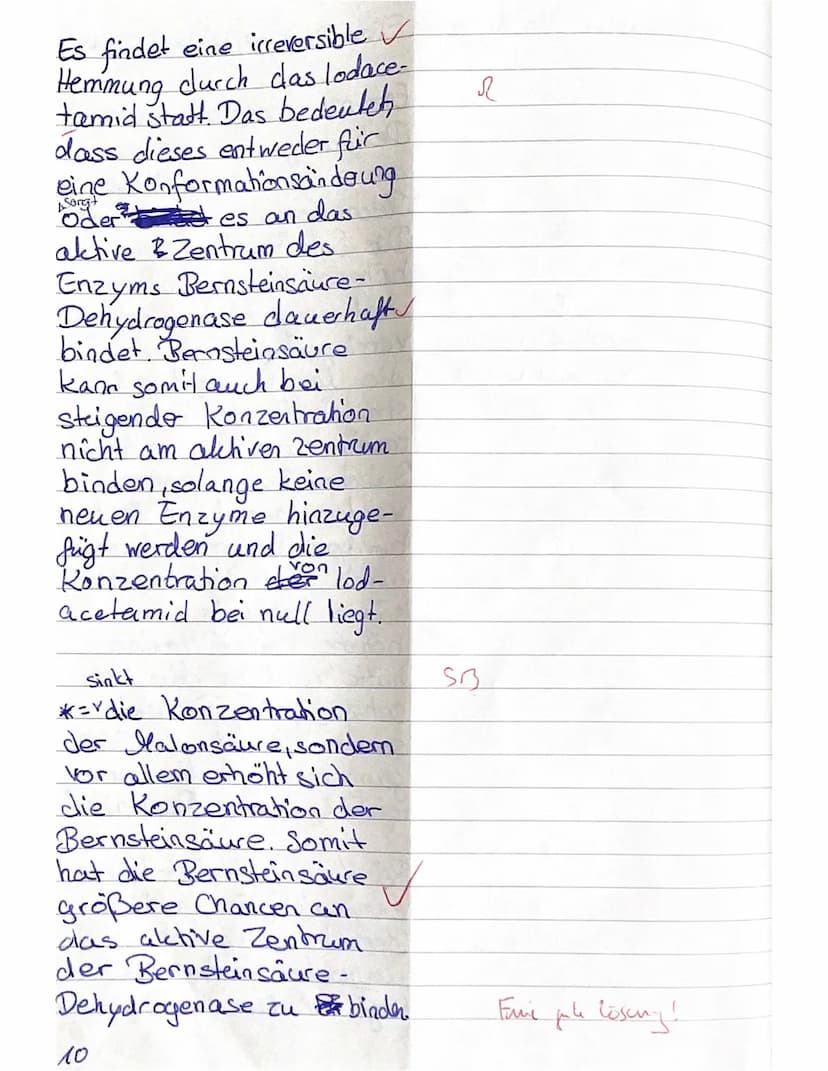 Es findet eine irreversible ✓
Hemmung durch das Iodace-
tamid statt. Das bedeutet,
R
dass dieses entweder für
eine Konformationsänderung
sorgt
oder es an das
aktive Zentrum des
Enzyms Bernsteinsäure-
Dehydrogenase dauerhaft ✓
bindet. Bernsteinsäure
kann somit auch bei
steigender Konzentration
nicht am aktiven Zentrum
binden, solange keine
neuen Enzyme hinzuge-
fügt werden und die
Konzentration von Iod-
acetamid bei null liegt.
sinkt
SB
*= die Konzentration
der Malonsäure, sondern
vor allem erhöht sich
die Konzentration der
Bernsteinsäure. Somit
hat die Bernsteinsäure
größere Chancen an ✓
das aktive Zentrum
der Bernsteinsäure-
Dehydrogenase zu binden.
Eine gute Lösung!
10